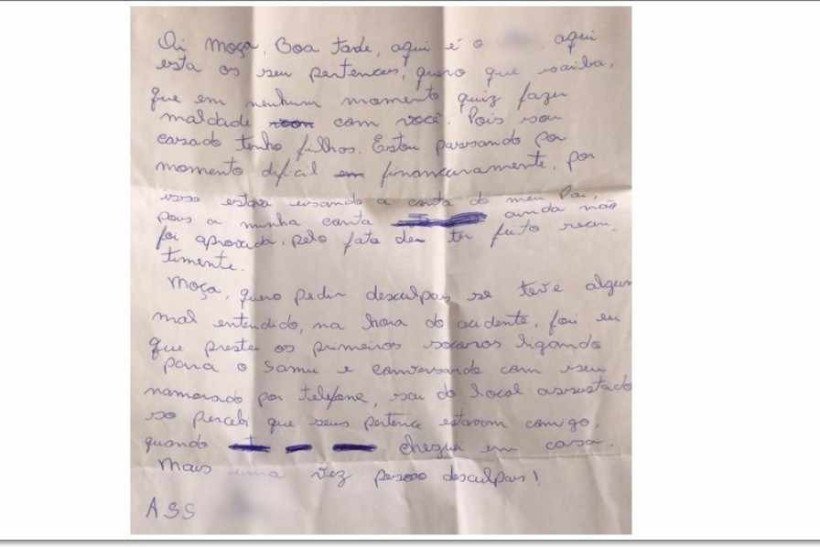 Oi moça, Boa tarde, aqui é o aqui
esta os seu pertences, quero que saiba,
que em nenhum momento quiz fazer
maldade com você. Pois sou
casado tenho filhos. Estou passando por
momento dificil financeiramente, por
isso estava usando a conta do meu Pai,
pois a minha conta ainda não
foi aprovada, pelo fato de ter feito recen
timente.
Moça, quero pedir desculpas se teve algum
mal entendido, na hora do acidente, foi eu
que prestei os primeiros socorros ligando
para o Samu e conversando com seu
namorado por telefone, sai do local assustado
so percebi que seus pertence estavam comigo,
quando cheguei em casa.
Mais uma vez pesso desculpas!
ASS